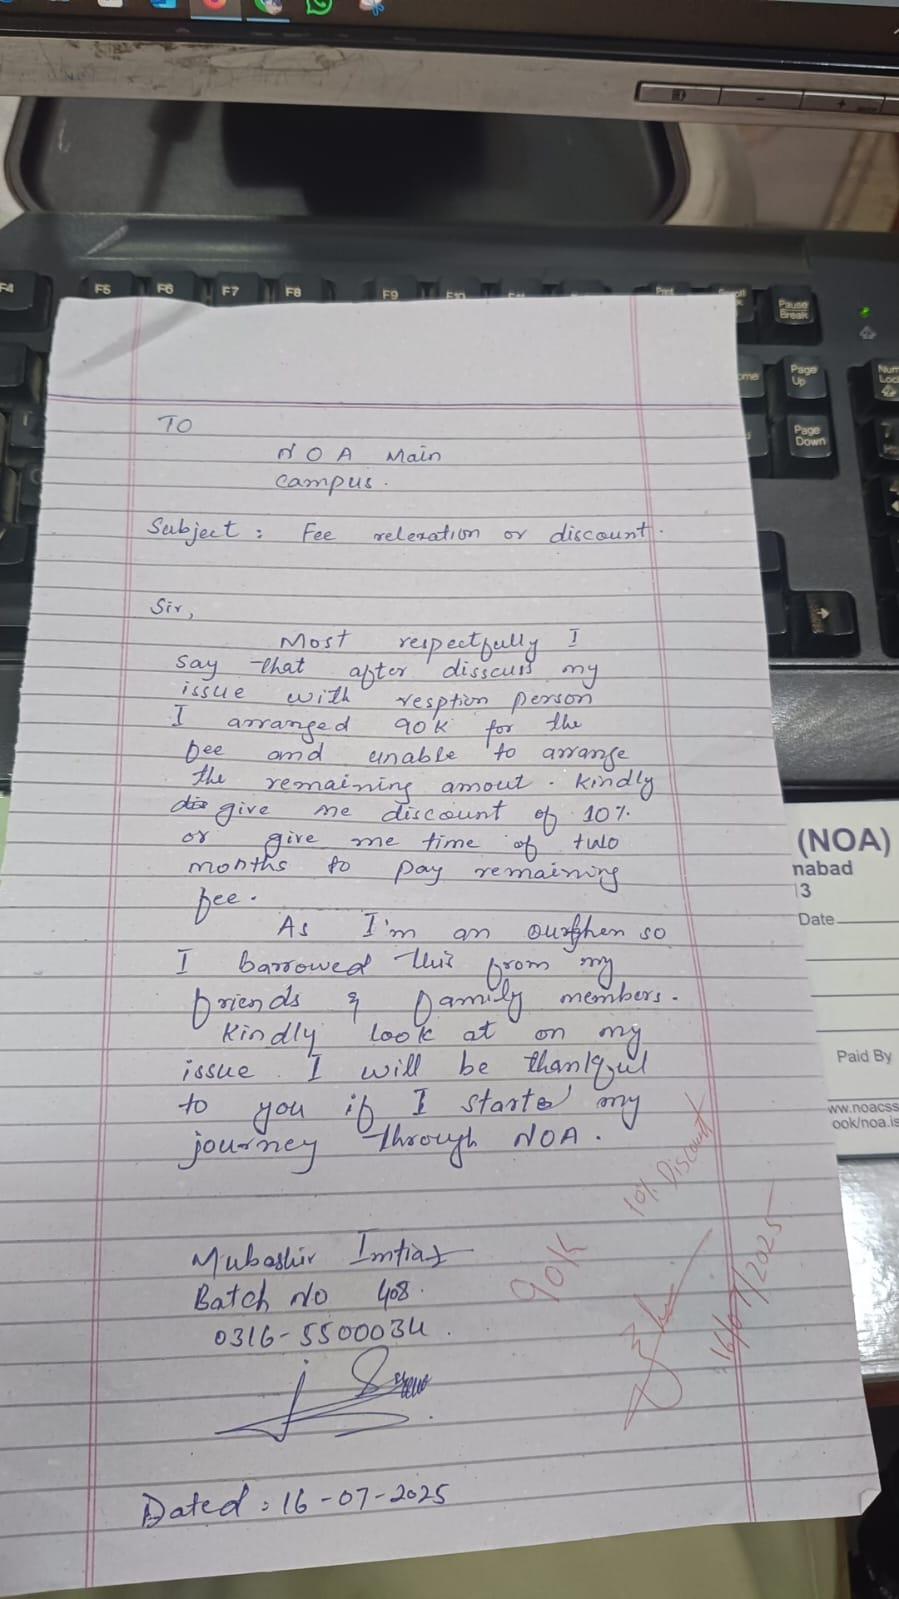 F4 F5 F6 F7 F8 F9 F10
Pause
Break
Page
Up
Num
Loc
Page
Down
TO
NOA Main
Campus.
Subject : Fee relexation or discount.
Sir,
Most respectfully I
say that after disscuss my
issue with resption person
I arranged 90K for the
fee and unable to arrange
the remaining amout. Kindly
give me discount of 10%
or give me time of two
months to pay remaining
fee.
As I'm an ourphen so
I barrowed this from my
friends & family members.
Kindly look at on my
issue. I will be thankful
to you if I started my
journey through NOA.
Mubashir Imtiaz
Batch No 408.
0316-5500034.
Dated : 16-07-2025
90K
10% Discount
16/07/2025
(NOA)
nabad
13
Date
Paid By
ww.noacss
ook/noa.is